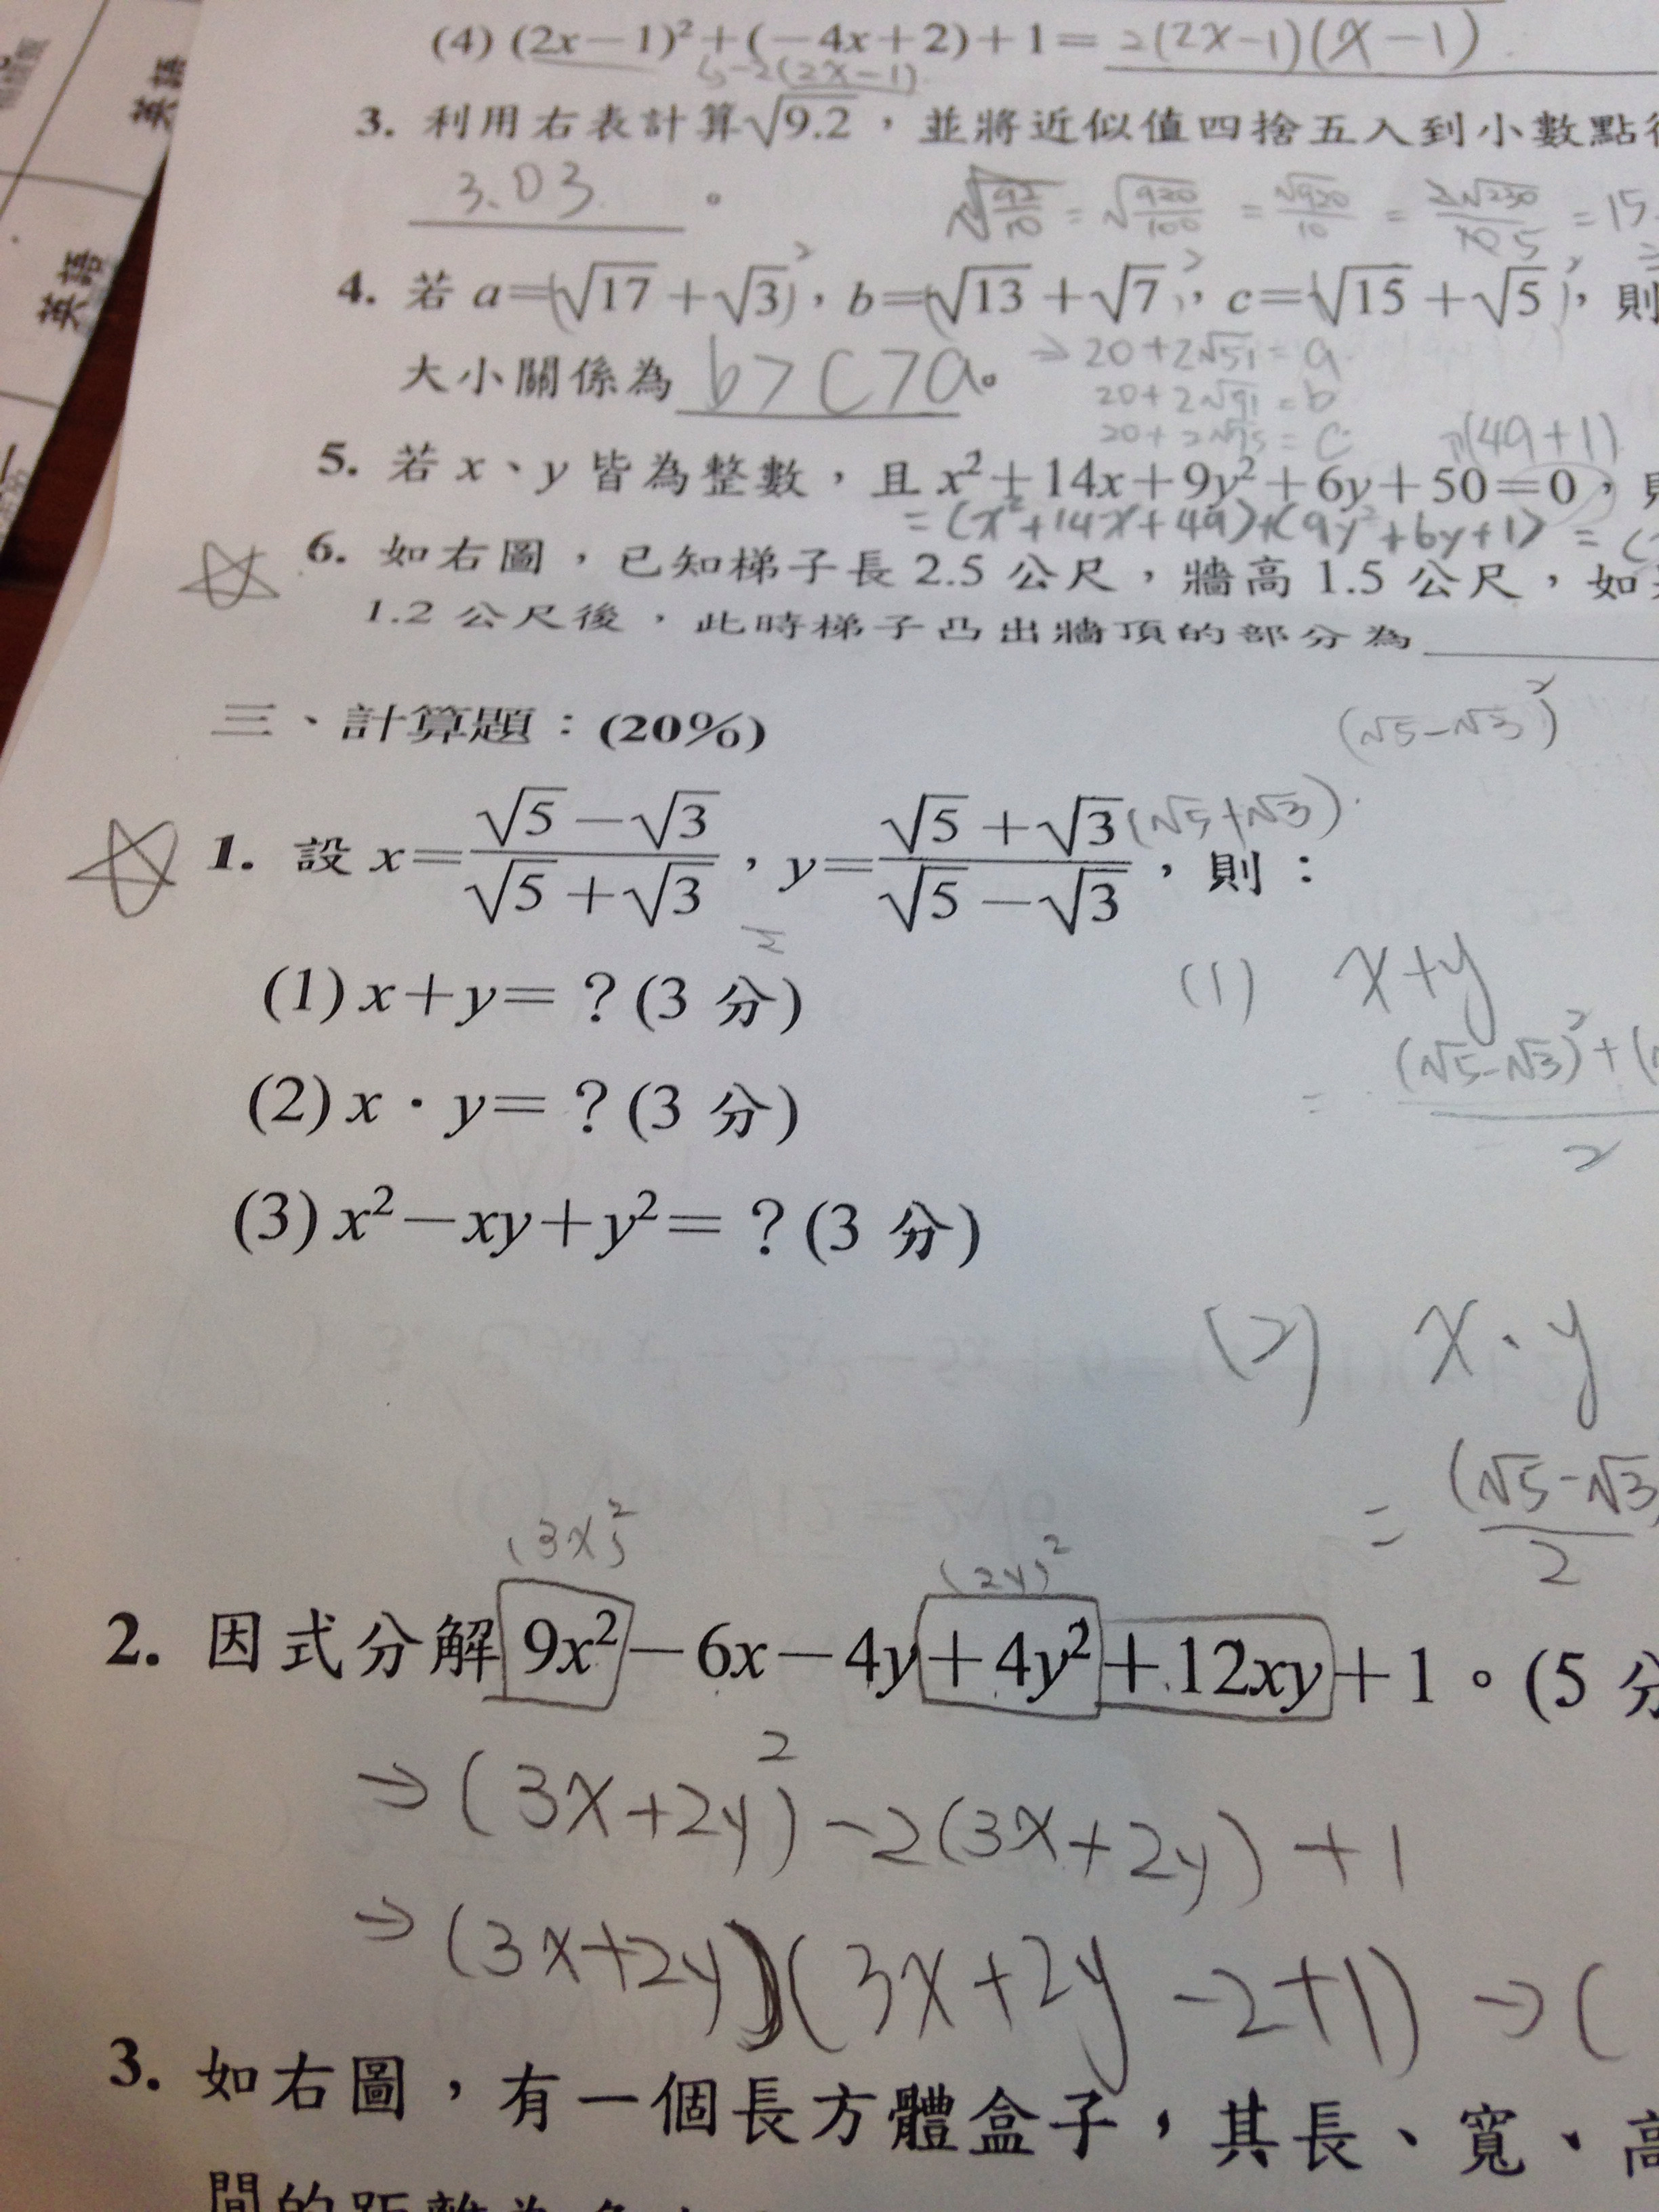 英語
英語
(4) (2x−1)²+(−4x+2)+1= 2(2x−1)(x−1)
↳ −2(2x−1)
3. 利用右表計算√9.2，並將近似值四捨五入到小數點
3.03 。 √92/10 = √920/100 = √920/10 = 2√230/10 5 = 15
4. 若 a=(√17+√3)²，b=(√13+√7)²，c=(√15+√5)²，則
大小關係為 b>c>a。 ⇒ 20+2√51=a
20+2√91=b
20+2√75=c (49+1)
5. 若 x、y 皆為整數，且 x²+14x+9y²+6y+50=0，
=(x²+14x+49)+(9y²+6y+1) = (
6. 如右圖，已知梯子長 2.5 公尺，牆高 1.5 公尺，如
1.2 公尺後，此時梯子凸出牆頂的部分為
三、計算題：(20%)
(√5−√3)²
1. 設 x=√5−√3/√5+√3，y=√5+√3/√5−√3，則： (√5+√3)
2
(1) x+y=？(3 分)
(1) x+y
(√5−√3)²+(
= 2
(2) x・y=？(3 分)
(3) x²−xy+y²=？(3 分)
(2) x・y
= (√5−√3)/2
(3x)² (2y)²
2. 因式分解 9x²−6x−4y+4y²+12xy+1。(5 分
⇒ (3x+2y)²−2(3x+2y)+1
⇒ (3x+2y)(3x+2y−2+1) → (
3. 如右圖，有一個長方體盒子，其長、寬、高
間的距離為